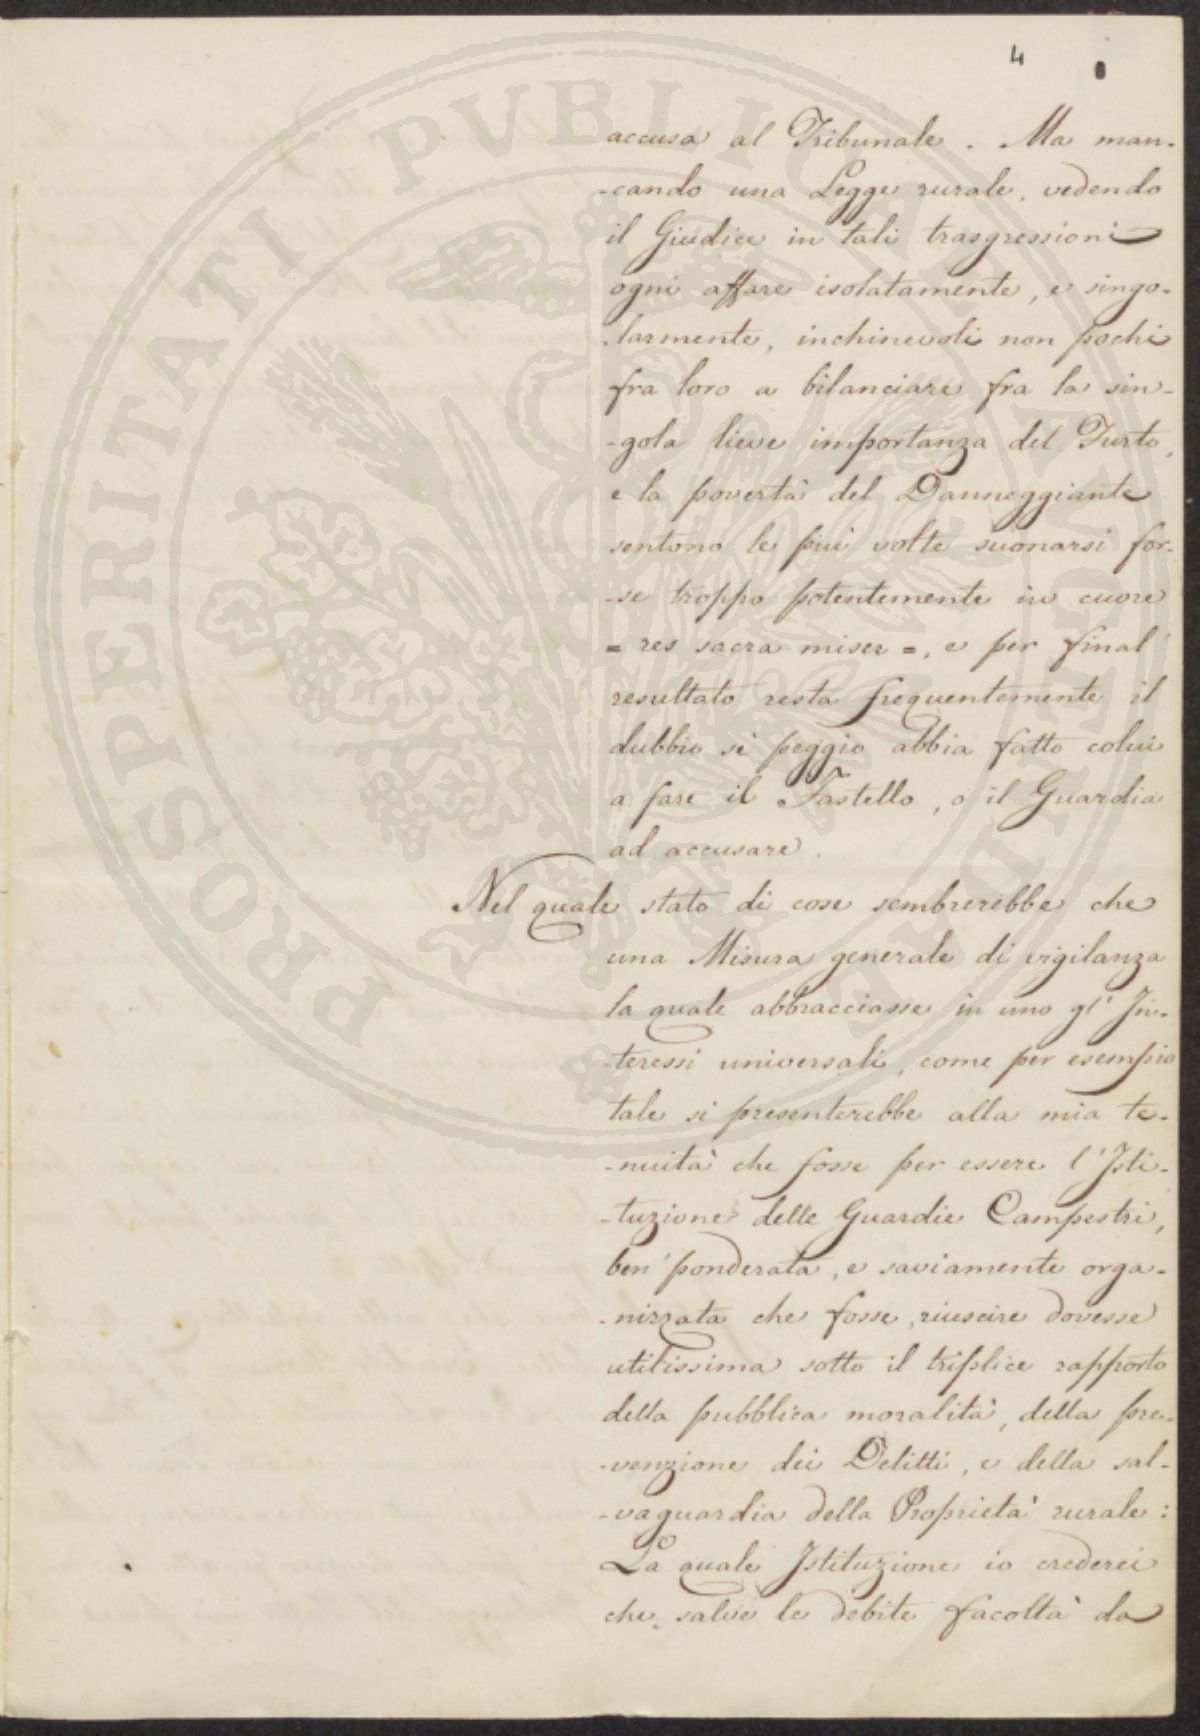 4
accusa al Tribunale. Ma man-
-cando una Legge rurale, vedendo
il Giudice in tali trasgressioni
ogni affare isolatamente, e singo-
-larmente, inchinevoli non pochi
fra loro a bilanciare fra la sin-
-gola lieve importanza del Furto,
e la povertà del Danneggiante
sentono le più volte suonarsi for-
-se troppo potentemente in cuore
= res sacra miser =, e per final'
resultato resta frequentemente il
dubbio se peggio abbia fatto colui
a fare il Fastello, o il Guardia
ad accusare.
Nel quale stato di cose sembrerebbe che
una Misura generale di vigilanza
la quale abbracciasse in uno gl'In-
-teressi universali, come per esempio
tale si presenterebbe alla mia te-
-nuità che fosse per essere l'Isti-
-tuzione delle Guardie Campestri,
ben' ponderata, e saviamente orga-
-nizzata che fosse, riuscire dovesse
utilissima sotto il triplice rapporto
della pubblica moralità, della pre-
-venzione dei Delitti, e della sal-
-vaguardia della Proprietà rurale:
La quale Istituzione io crederei
che, salve le debite facoltà da
PROSPERITATI PUBLICAE AUGENDAE